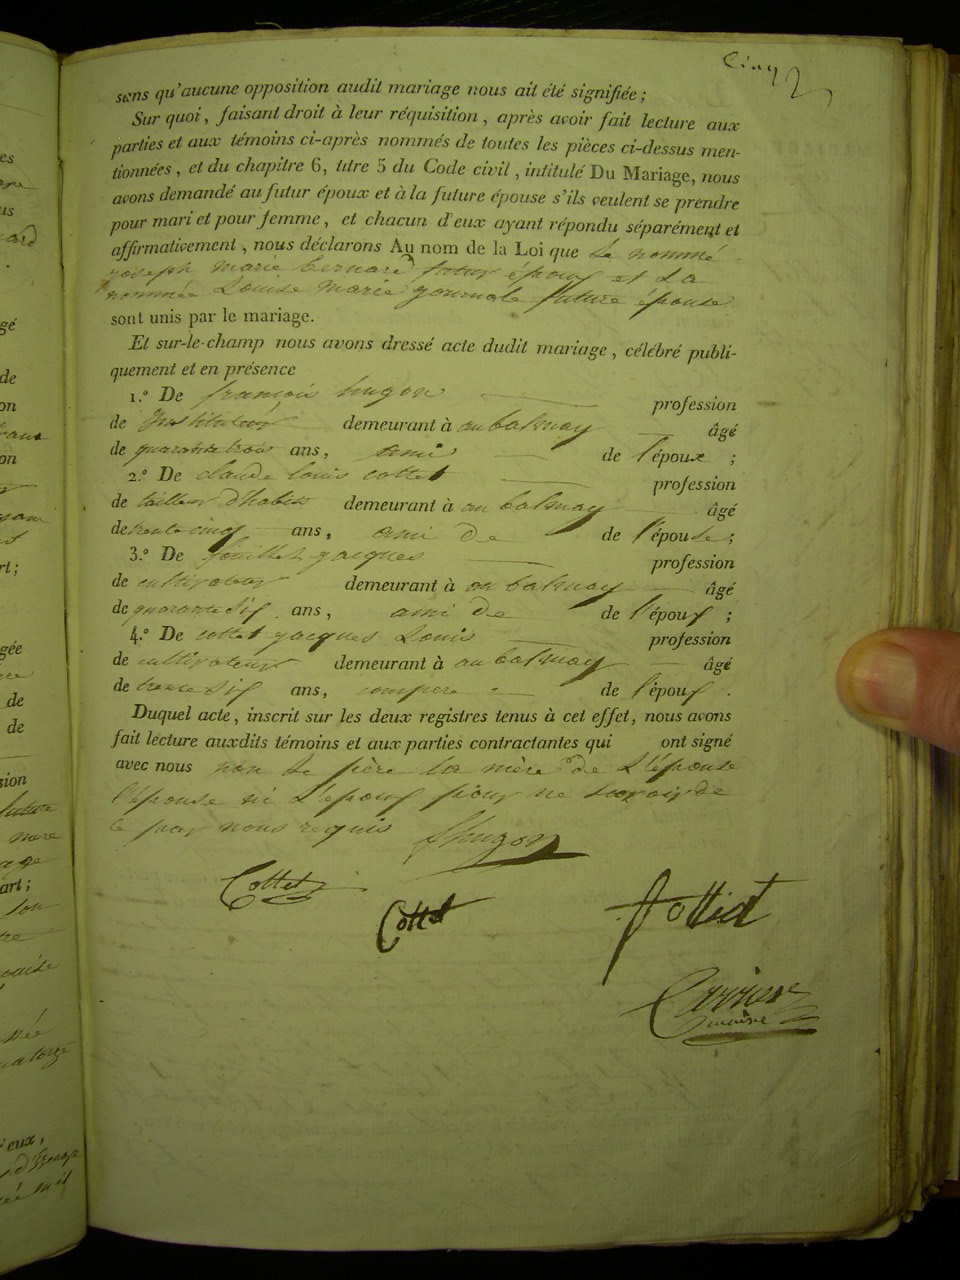 cinq
sans qu'aucune opposition audit mariage nous ait été signifiée ;
Sur quoi, faisant droit à leur réquisition, après avoir fait lecture aux
parties et aux témoins ci-après nommés de toutes les pièces ci-dessus men-
tionnées, et du chapitre 6, titre 5 du Code civil, intitulé Du Mariage, nous
avons demandé au futur époux et à la future épouse s'ils veulent se prendre
pour mari et pour femme, et chacun d'eux ayant répondu séparément et
affirmativement, nous déclarons Au nom de la Loi que le nommé
joseph marie bernard futur époux et La
nommée Louise marie future épouse
sont unis par le mariage.
Et sur-le-champ nous avons dressé acte dudit mariage, célébré publi-
quement et en présence
1.° De françois hugon profession
de Instituteur demeurant à au balmay âgé
de quarante trois ans, ami de l'époux ;
2.° De claude louis cottet profession
de tailleur d'habits demeurant à au balmay âgé
de trente cinq ans, ami de de l'épouse ;
3.° De jacques profession
de cultivateur demeurant à au balmay âgé
de quarante six ans, ami de de l'époux ;
4.° De cottet jacques Louis profession
de cultivateur demeurant à au balmay âgé
de trente six ans, de l'époux .
Duquel acte, inscrit sur les deux registres tenus à cet effet, nous avons
fait lecture auxdits témoins et aux parties contractantes qui ont signé
avec nous non Le père la mère de L'épouse
l'épouse ni L'époux pour ne savoir de
ce par nous requis
fhugon
Cottet
Cottet
Carriere
maire